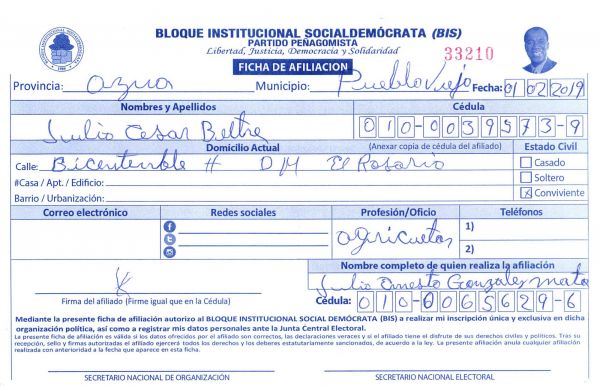 BLOQUE INSTITUCIONAL SOCIALDEMÓCRATA (BIS)
PARTIDO PEÑAGOMISTA
Libertad, Justicia, Democracia y Solidaridad
33210
FICHA DE AFILIACION
Provincia: Azua Municipio: Pueblo Viejo Fecha: 01 02 2019
Nombres y Apellidos Cédula
Julio Cesar Beltre 010-0039573-9
Domicilio Actual (Anexar copia de cédula del afiliado) Estado Civil
Calle: # DM El Rosario Casado
#Casa / Apt. / Edificio: Soltero
Barrio / Urbanización: Conviviente
Correo electrónico Redes sociales Profesión/Oficio Teléfonos
1)
2)
Nombre completo de quien realiza la afiliación
Julio Gonzalez
Firma del afiliado (Firme igual que en la Cédula) Cédula: 010-0065629-6
Mediante la presente ficha de afiliación autorizo al BLOQUE INSTITUCIONAL SOCIAL DEMÓCRATA (BIS) a realizar mi inscripción única y exclusiva en dicha
organización política, así como a registrar mis datos personales ante la Junta Central Electoral.
La presente ficha de afiliación es válida si los datos ofrecidos por el afiliado son correctos, las declaraciones veraces y si el afiliado tiene el disfrute de sus derechos civiles y políticos. Tras su
recepción, sello y firmas autorizadas el afiliado ejercerá todos los derechos y los deberes estatutariamente sancionados, de acuerdo a la ley. La presente afiliación anula cualquier afiliación
realizada con anterioridad a la fecha que aparece en esta ficha.
SECRETARIO NACIONAL DE ORGANIZACIÓN SECRETARIO NACIONAL ELECTORAL